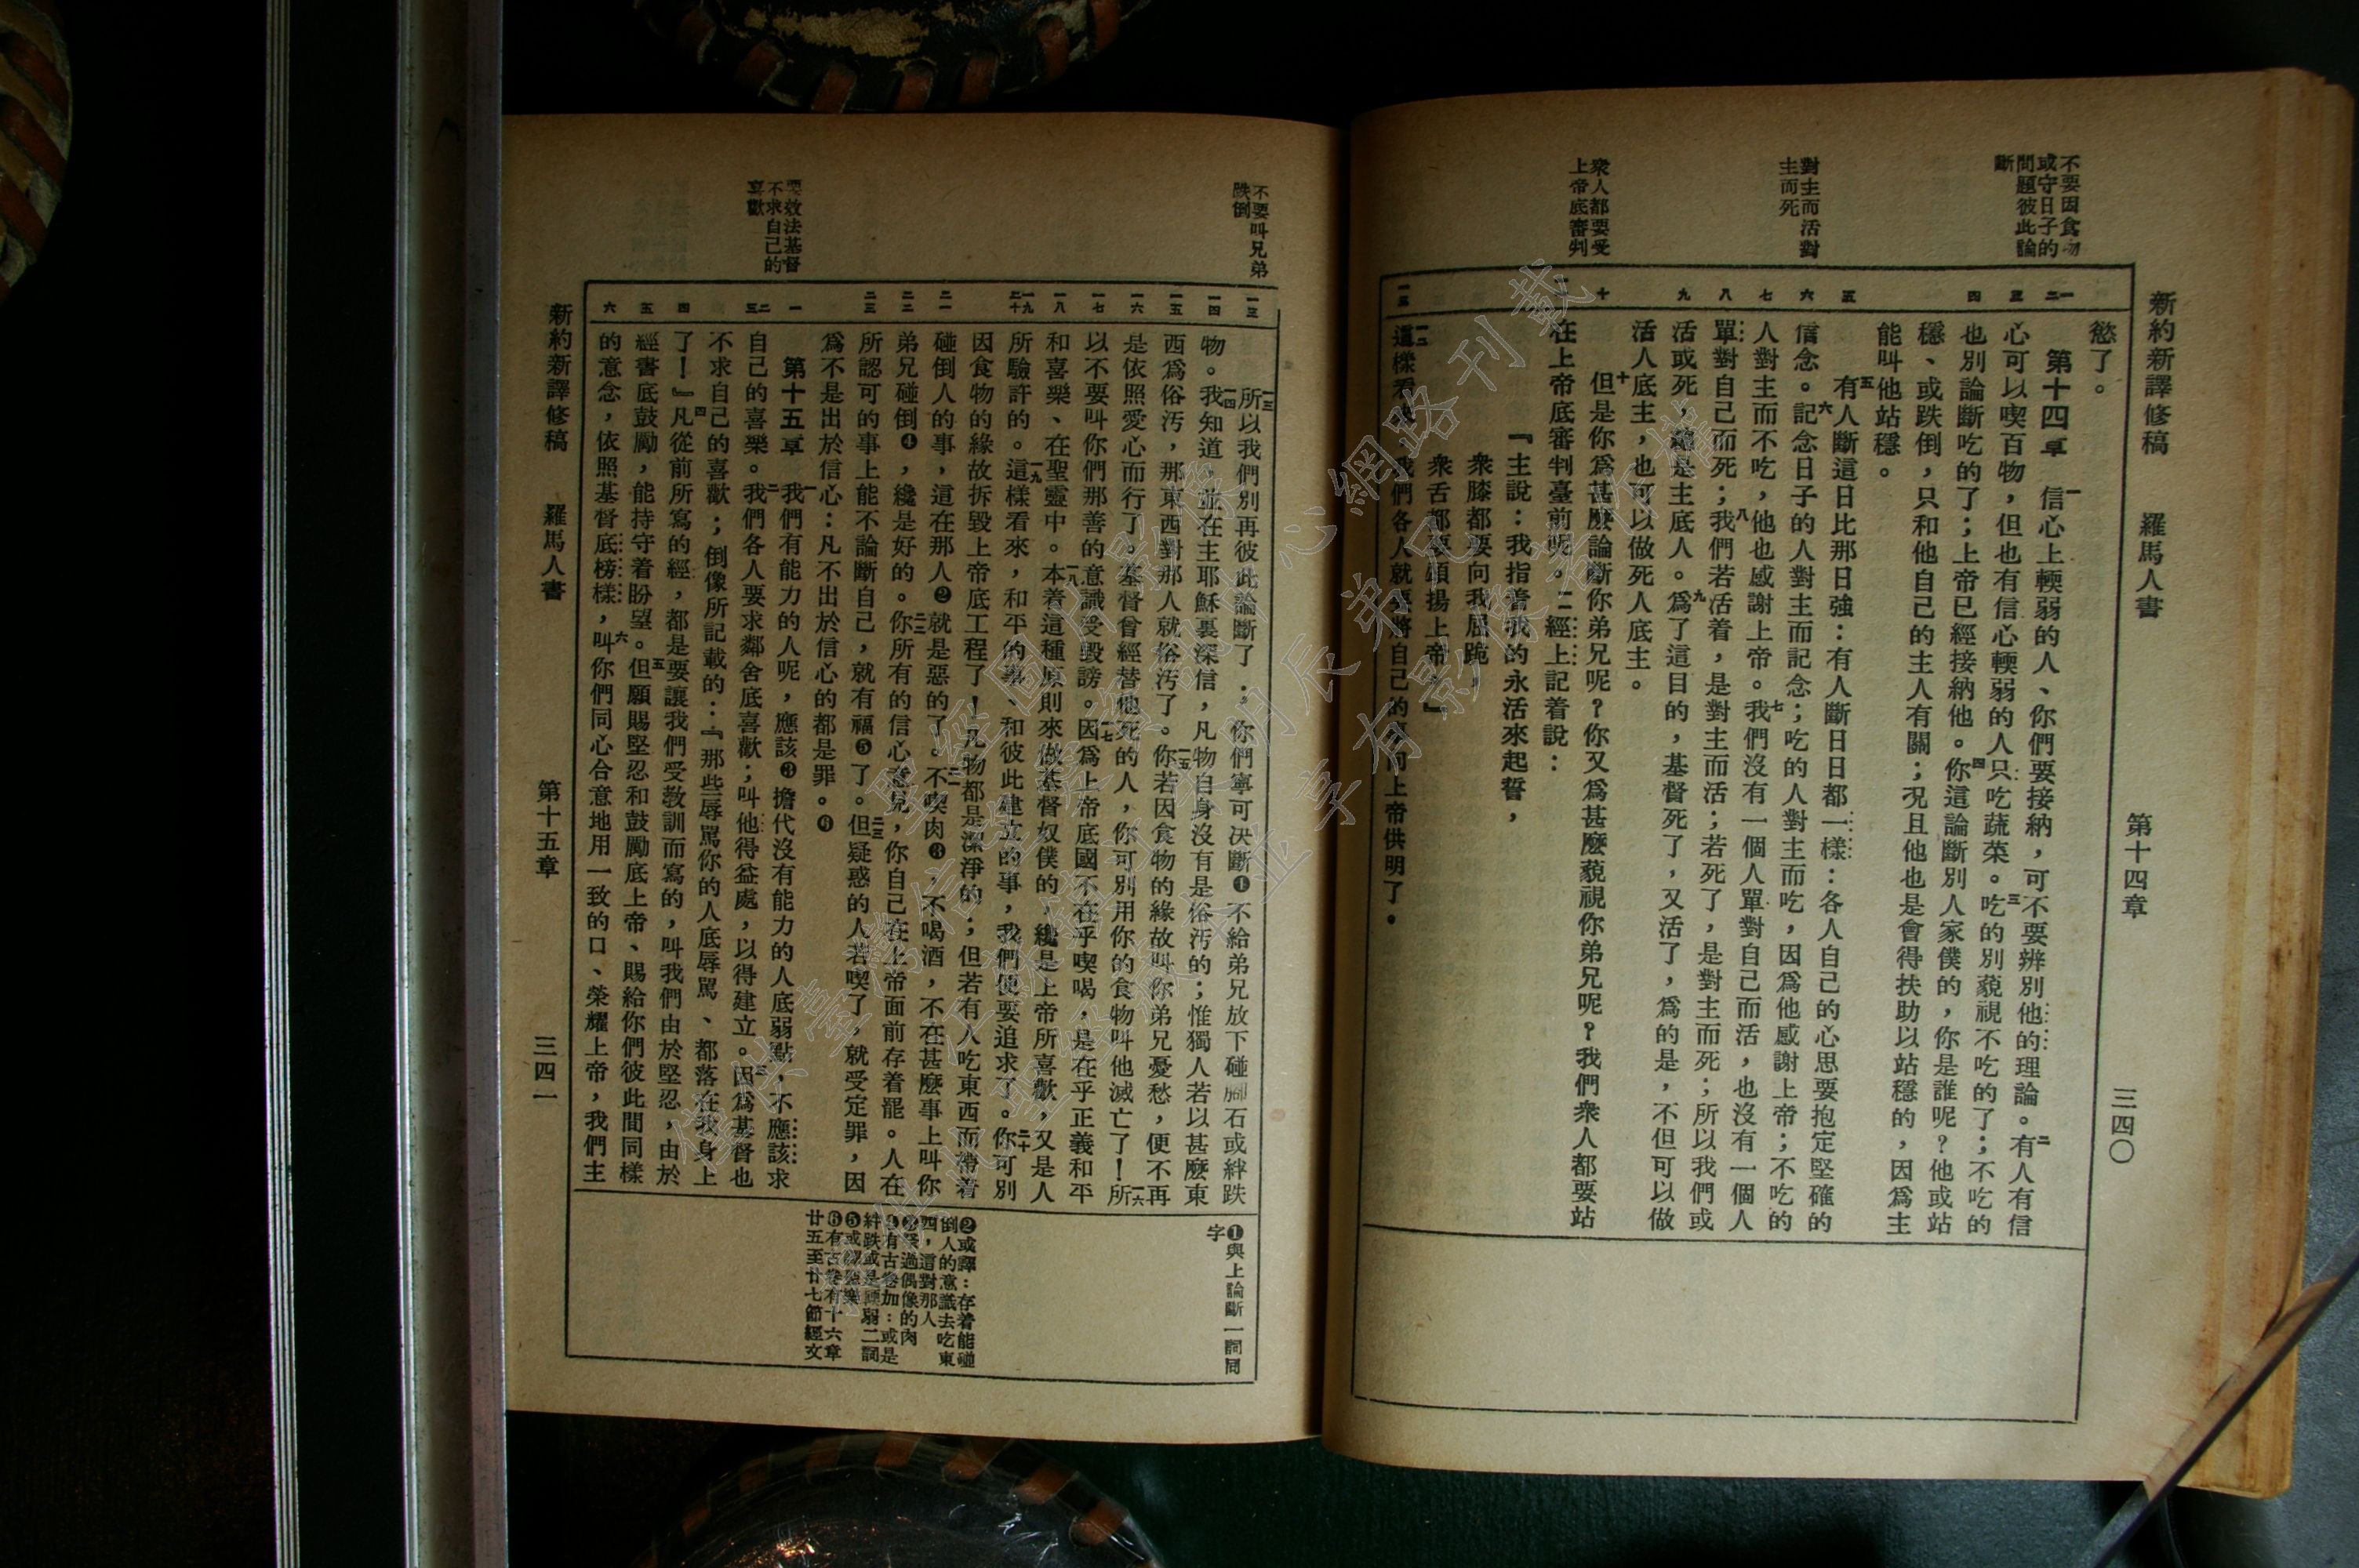 新約新譯修稿　羅馬人書　第十四章　三四〇
不要因食物
或守日子的
問題彼此論
斷
對主而活對
主而死
衆人都要受
上帝底審判
慾了。
第十四章　一信心上輭弱的人、你們要接納，可不要辨別他的理論。二有人有信
心可以喫百物，但也有信心輭弱的人只吃蔬菜。三吃的別藐視不吃的了；不吃的
也別論斷吃的了；上帝已經接納他。四你這論斷別人家僕的，你是誰呢？他或站
穩、或跌倒，只和他自己的主人有關；況且他也是會得扶助以站穩的，因爲主
能叫他站穩。
五有人斷這日比那日強：有人斷日日都一樣：各人自己的心思要抱定堅確的
信念。六記念日子的人對主而記念；吃的人對主而吃，因爲他感謝上帝；不吃的
人對主而不吃，他也感謝上帝。七我們沒有一個人單對自己而活，也沒有一個人
單對自己而死；八我們若活着，是對主而活；若死了，是對主而死；所以我們或
活或死，總是主底人。九爲了這目的，基督死了，又活了，爲的是，不但可以做
活人底主，也可以做死人底主。
十但是你爲甚麼論斷你弟兄呢？你又爲甚麼藐視你弟兄呢？我們衆人都要站
在上帝底審判臺前呢。一一經上記着說：
『主說：我指着我的永活來起誓，
衆膝都要向我屈跪，
衆舌都要頌揚上帝。』
一二這樣看來，我們各人就要將自己的事向上帝供明了。
不要叫兄弟
跌倒
要效法基督
不求自己的
喜歡
一三所以我們別再彼此論斷了；你們寧可決斷❶不給弟兄放下碰腳石或絆跌
物。一四我知道，並在主耶穌裏深信，凡物自身沒有是俗污的；惟獨人若以甚麼東
西爲俗污，那東西對那人就俗污了。一五你若因食物的緣故叫你弟兄憂愁，便不再
是依照愛心而行了。基督曾經替他死的人，你可別用你的食物叫他滅亡了！一六所
以不要叫你們那善的意識受毀謗。一七因爲上帝底國不在乎喫喝，是在乎正義和平
和喜樂、在聖靈中。一八本着這種原則來做基督奴僕的，纔是上帝所喜歡，又是人
所驗許的。一九這樣看來，和平的事、和彼此建立的事，我們便要追求了。二十你可別
因食物的緣故拆毀上帝底工程了！凡物都是潔淨的；但若有人吃東西而帶着
碰倒人的事，這在那人❷就是惡的了。二一不喫肉❸、不喝酒，不在甚麼事上叫你
弟兄碰倒❹，纔是好的。二二你所有的信心意見，你自己在上帝面前存着罷。人在
所認可的事上能不論斷自己，就有福❺了。二三但疑惑的人若喫了，就受定罪，因
爲不是出於信心：凡不出於信心的都是罪。❻
第十五章　一我們有能力的人呢，應該❸擔代沒有能力的人底弱點，不應該求
自己的喜樂。二我們各人要求鄰舍底喜歡；叫他得益處，以得建立。三因爲基督也
不求自己的喜歡；倒像所記載的：『那些辱罵你的人底辱罵、都落在我身上
了！』四凡從前所寫的經，都是要讓我們受教訓而寫的，叫我們由於堅忍，由於
經書底鼓勵，能持守着盼望。五但願賜堅忍和鼓勵底上帝、賜給你們彼此間同樣
的意念，依照基督底榜樣，六叫你們同心合意地用一致的口、榮耀上帝，我們主
❶與上論斷一詞同
字
❷或譯：存着能碰
倒人的意識去吃東
西，這對那人
❸祭過偶像的肉
❹有古卷加：或是
絆跌或是輭弱二詞
❺或
❻有古卷有十六章
廿五至廿七節經文
新約新譯修稿　羅馬人書　第十五章　三四一